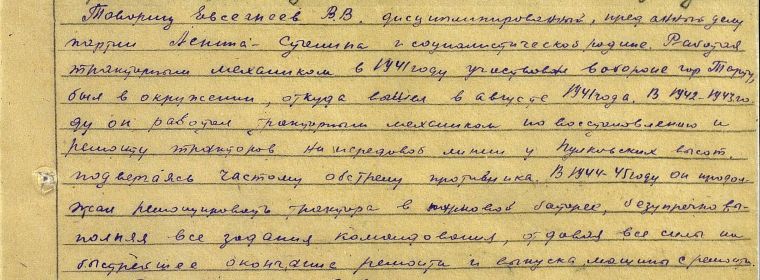 Товарищ Евсегнеев В.В. дисциплинированный, преданный делу
партии Ленина-Сталина и социалистической родине. Работая
тракторным механиком в 1941 году участвовал в обороне гор Тарту,
был в окружении, откуда вышел в августе 1941 года. В 1942-1943 го-
ду он работал тракторным механиком по восстановлению и
ремонту тракторов на передовой линии у Пулковских высот.
подвергаясь частому обстрелу противника. В 1944-45 году он продол-
жал ремонтировать трактора в парковой батарее, безупречно вы-
полняя все задания командования, отдавая все силы на
быстрейшее окончание ремонта и выпуска машины с ремонта.